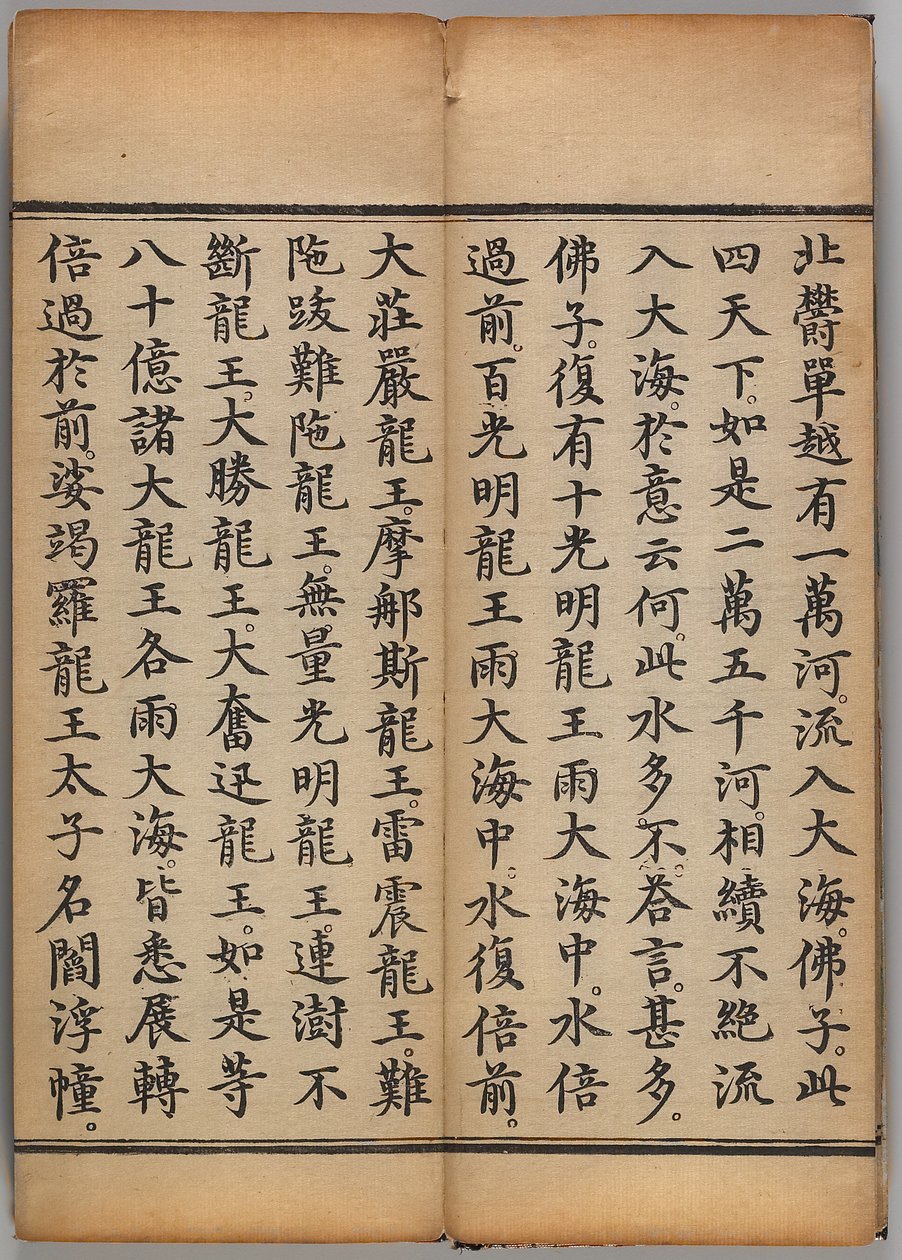 北鬱單越有一萬河。流入大海。佛子。此
四天下。如是二萬五千河。相續不絕流
入大海。於意云何。此水多。不。荅言。甚多。
佛子。復有十光明龍王雨大海中。水倍
過前。百光明龍王雨大海中。水復倍前。
大莊嚴龍王。摩那斯龍王。雷震龍王。難
陁跋難陁龍王。無量光明龍王。連澍不
斷龍王。大勝龍王。大奮迅龍王。如是等
八十億諸大龍王各雨大海。皆悉展轉
倍過於前。娑竭羅龍王太子名閻浮幢。